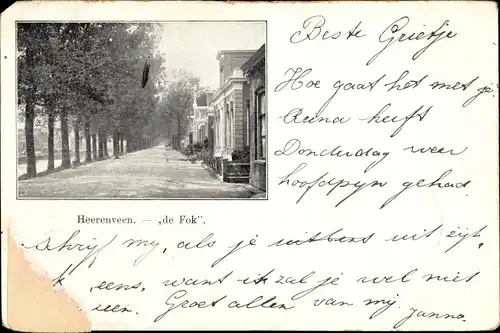 Beste Grietje
Hoe gaat het met je
Anna heeft
Donderdag weer
hoofdpyn gehad.
Heerenveen. — „de Fok".
Schrijf my, als je uit zijt,
eens, want ik zal je wel niet
zien. Groet allen van my Janna.